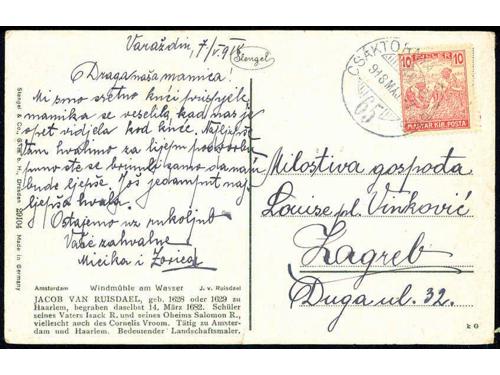 Varaždin, 7/V. 918.
Stengel
Draga naša mamica!
Mi smo sretno kući prispjele,
mamika se veselila kad nas je
opet vidjela kod kuće. Najljepše
Vam hvalimo za lijepu
puno ste se brinuli samo da nam
bude ljepše, još jedamput naj-
ljepša hvala.
Ostajemo uz rukoljub
Vaše zahvalne
Micika i Zorica
Stengel & Co., G. m. b. H., Dresden 29104 Made in Germany
CSÁKTORNYA
918 MÁJ.
10 FILLÉR 10
MAGYAR KIR. POSTA
Milostiva gospođa
Louise pl. Vinković
Zagreb
Duga ul. 32.
Amsterdam Windmühle am Wasser J. v. Ruisdael
JACOB VAN RUISDAEL, geb. 1628 oder 1629 zu
Haarlem, begraben daselbst 14. März 1682. Schüler
seines Vaters Isack R. und seines Oheims Salomon R.,
vielleicht auch des Cornelis Vroom. Tätig zu Amster-
dam und Haarlem. Bedeutender Landschaftsmaler.